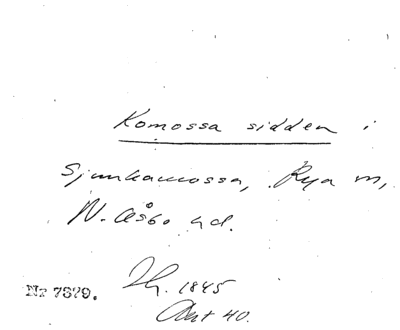 Komossa sidden i
Sjunkamossa, Rya m,
N. Åsbo hd.
Nr 7879.
1845
Akt 40.